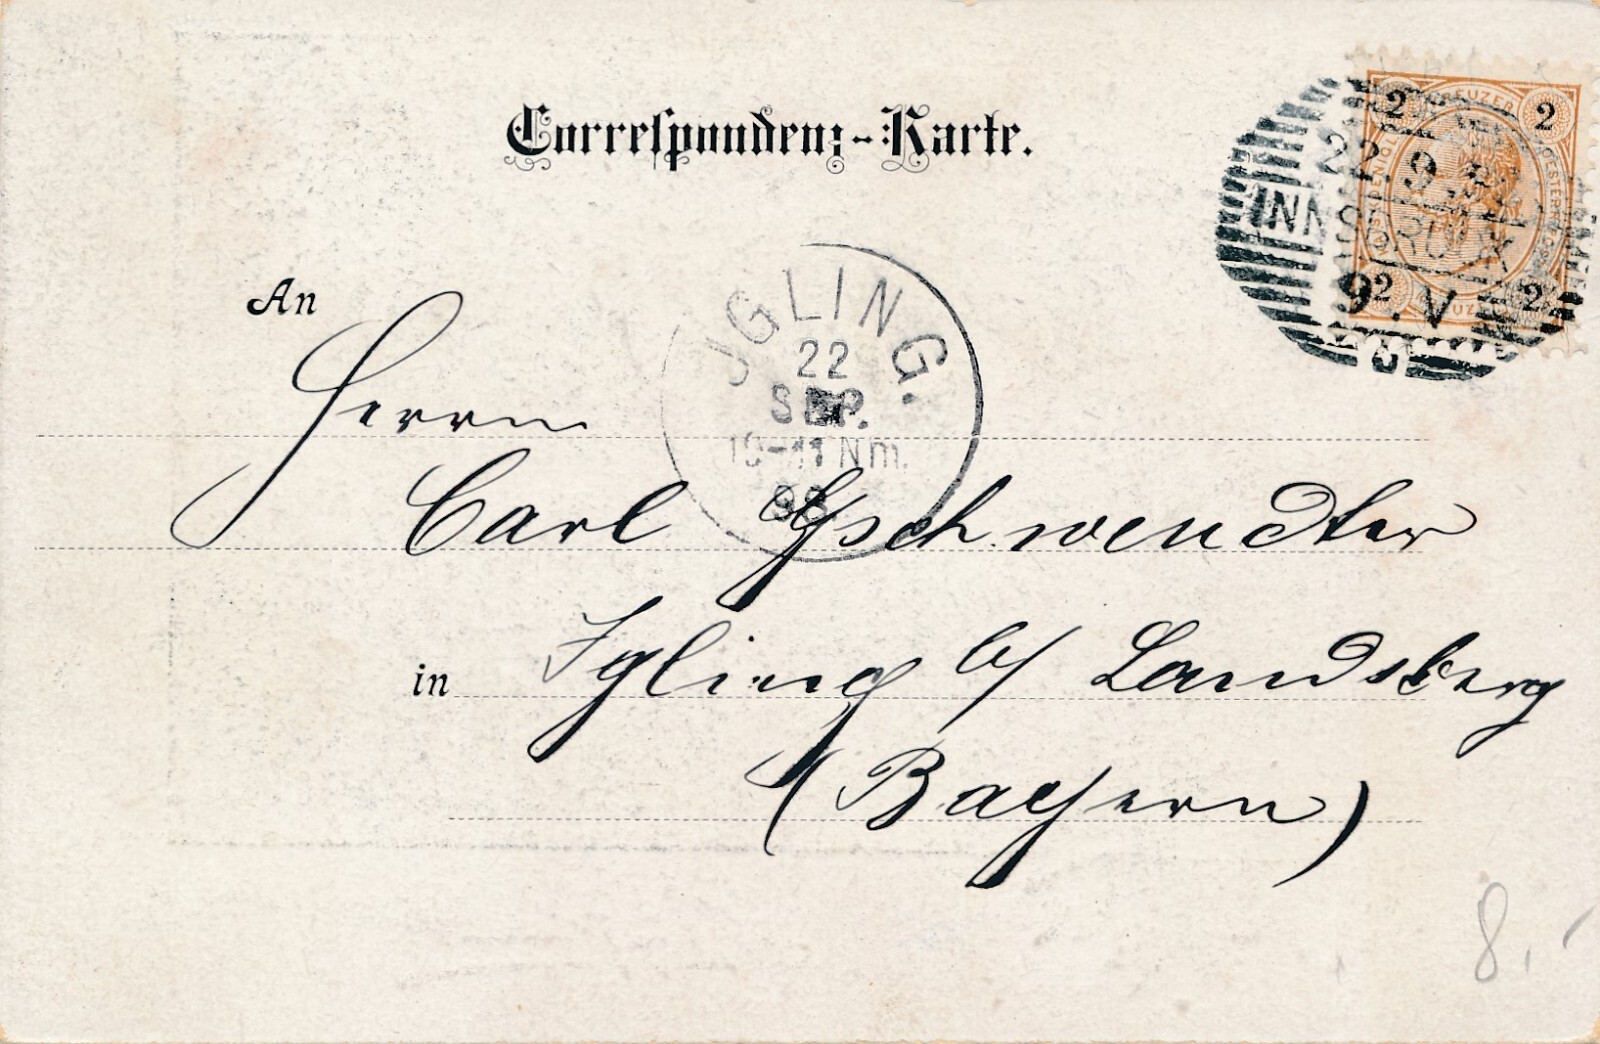 Correspondenz-Karte.
2 KREUZER 2
22.9.
INNSBRUCK
2 2
9. V
An
IGLING.
22
SEP.
10-11 Nm.
98
Herrn
Carl Gschwendter
in Igling b/ Landsberg
(Bayern)
8,-